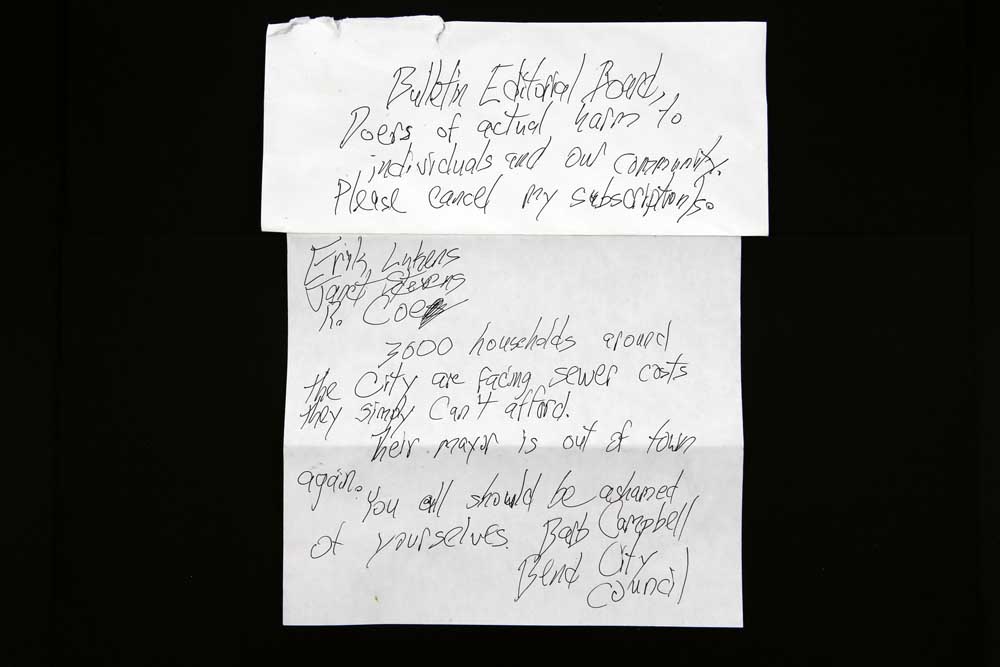 Bulletin Editorial Board,
Doers of actual harm to
individuals and our community.
Please cancel my subscription/s.
Erik Lukens
Janet Stevens
R. Coe
3000 households around
the City are facing sewer costs
they simply can't afford.
Their mayor is out of town
again.
You all should be ashamed
of yourselves. Barb Campbell
Bend City
Council